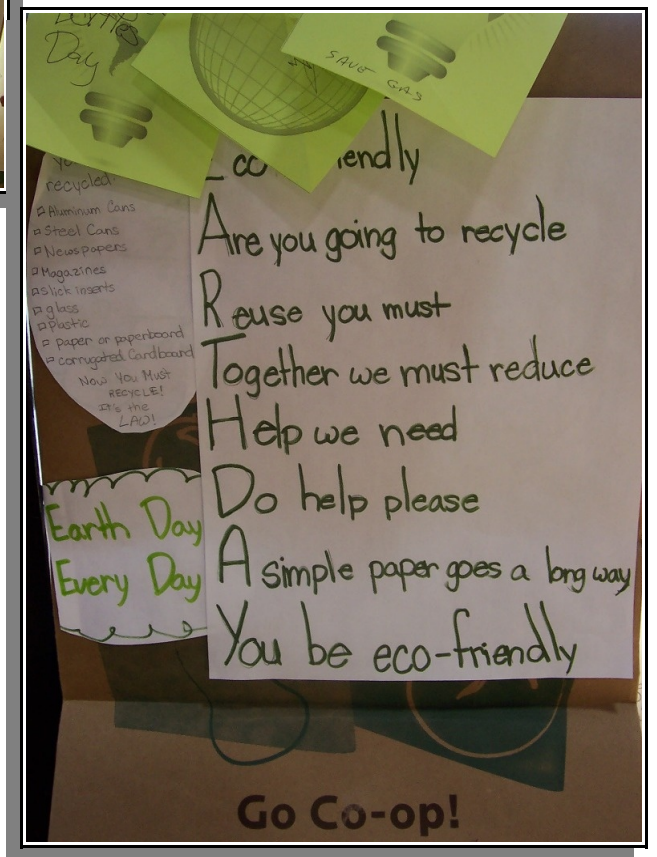 Day
SAVE GAS
endly
recycled!
Aluminum Cans
Steel Cans
Newspapers
Magazines
slick inserts
glass
plastic
paper or paperboard
corrugated Cardboard
Now You Must
RECYCLE!
It's the
LAW!
Earth Day
Every Day
Are you going to recycle
Reuse you must
Together we must reduce
Help we need
Do help please
A simple paper goes a long way
You be eco-friendly
Go Co-op!